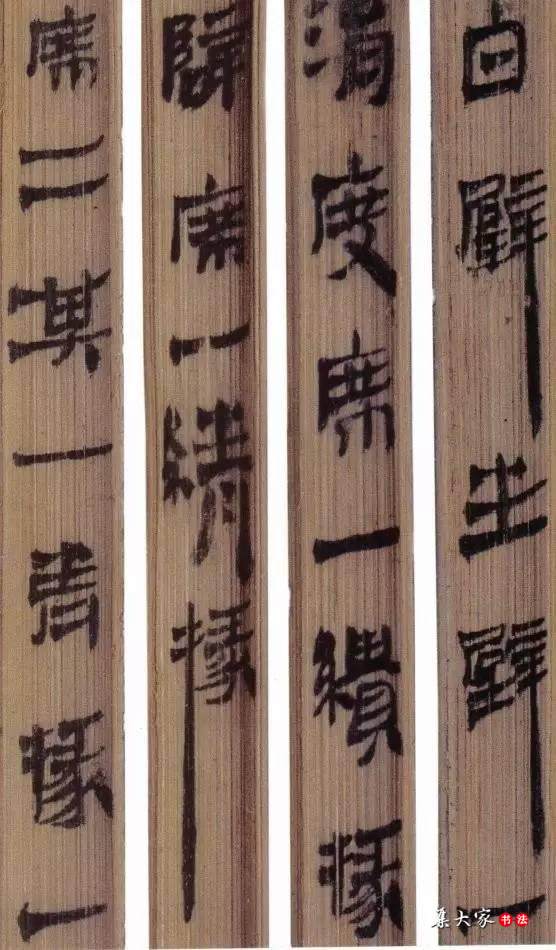 白璧生璧一
滑度席一繢掾
席一綪掾
席二其一青掾一
集大家 书法